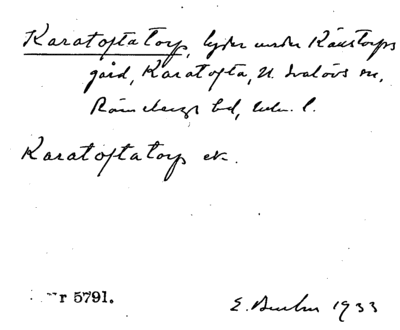 Karatoftatorp, lyder under Känstorps
gård, Karatofta, N. Svalövs sn,
Rönnebergs hd, Malm. l.
Karatoftatorp ek.
r 5791.
E. 1933